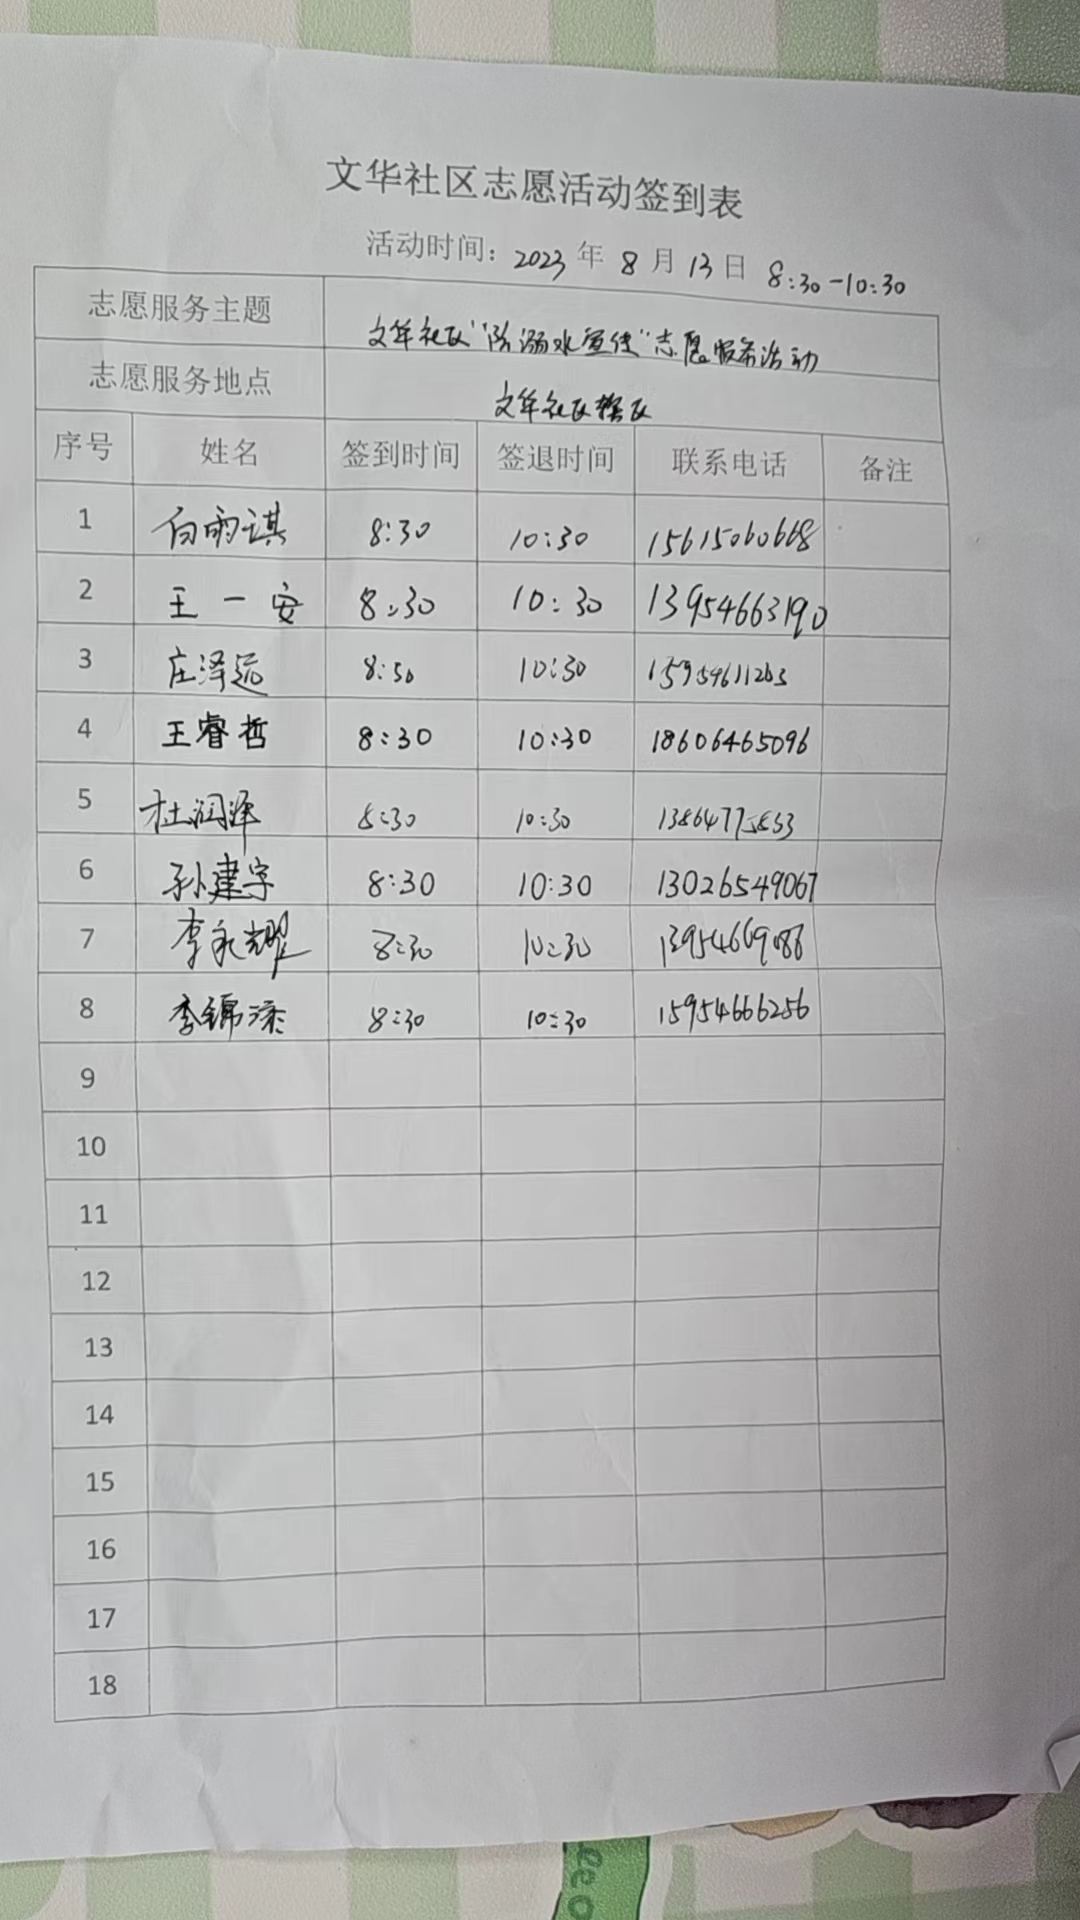 文华社区志愿活动签到表
活动时间：2023 年 8 月 13 日 8:30-10:30
志愿服务主题 文华社区"防溺水宣传"志愿服务活动
志愿服务地点 文华社区辖区
序号 姓名 签到时间 签退时间 联系电话 备注
1 白雨琪 8:30 10:30 15615060668
2 王一安 8:30 10:30 13954663190
3 庄泽远 8:30 10:30 15954611203
4 王睿哲 8:30 10:30 18606465096
5 杜润泽 8:30 10:30
6 孙建宇 8:30 10:30 13026549067
7 李永耀 8:30 10:30 13954669086
8 李锦 8:30 10:30 15954666256
9
10
11
12
13
14
15
16
17
18